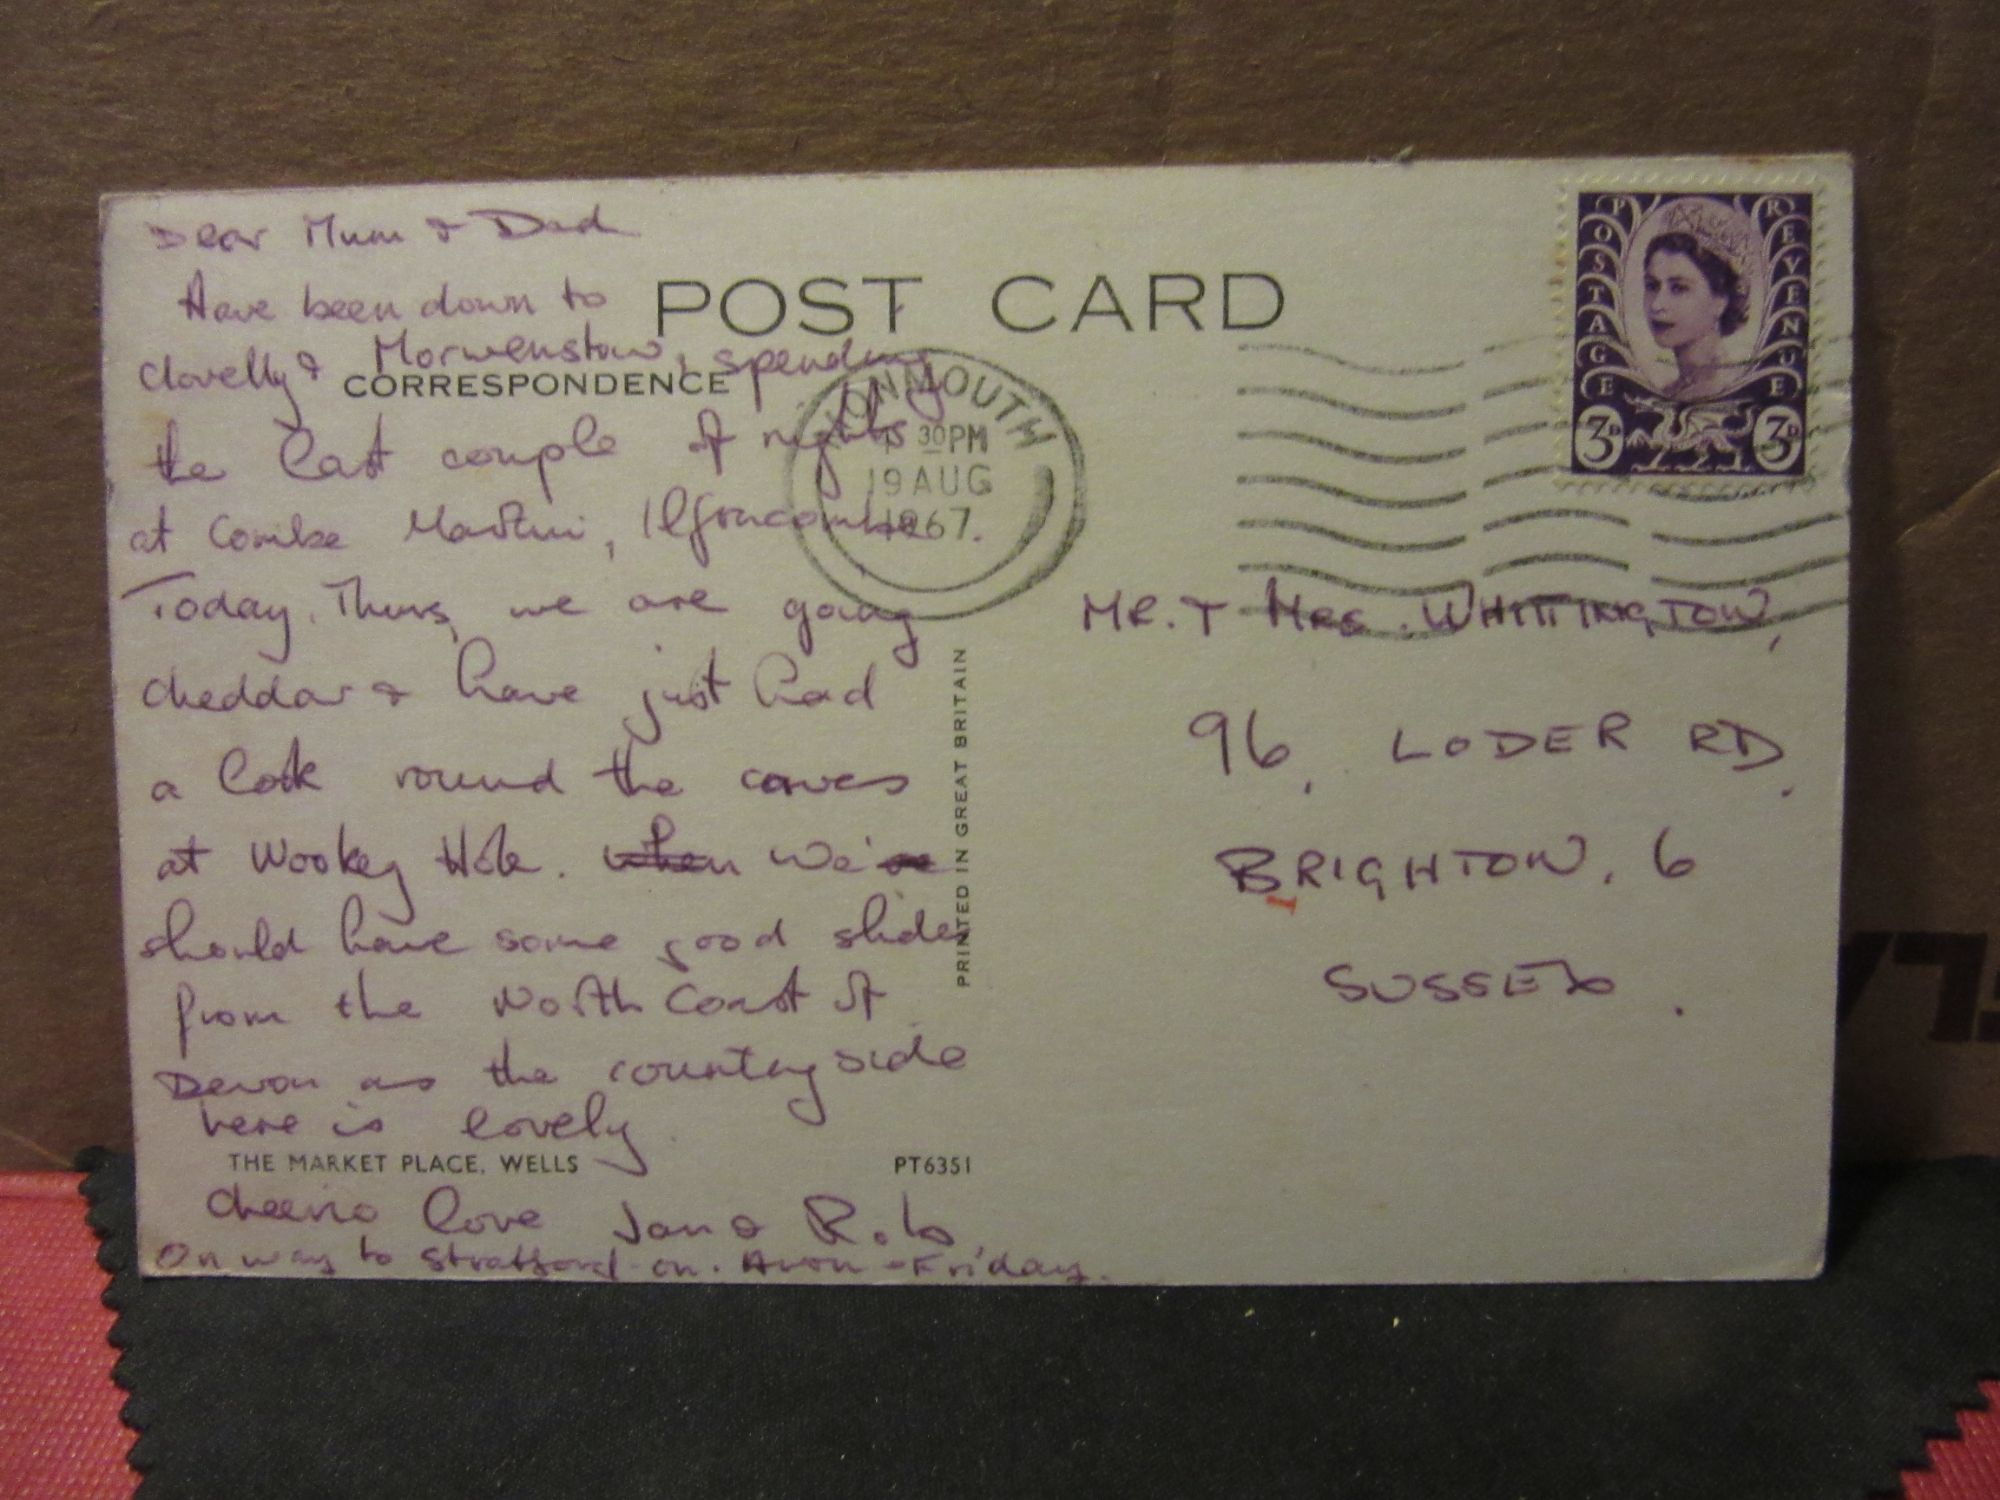 Dear Mum & Dad
Have been down to
POST CARD
Clovelly & Morwenstow, spending
CORRESPONDENCE
the last couple of nights
at Combe Martin, Ilfracombe.
Today, Thurs, we are going
Cheddar & have just had
a look round the caves
at Wookey Hole. when We've
should have some good slides
from the North Coast of
Devon as the countryside
here is lovely.
THE MARKET PLACE, WELLS PT6351
Cheerio love Jan & Rob
On way to Stratford-on-Avon - Friday.
PRINTED IN GREAT BRITAIN
MONMOUTH
30 PM
19 AUG
1967
POSTAGE REVENUE
3D 3D
MR. & MRS. WHITTINGTON,
96, LODER RD.
BRIGHTON. 6
SUSSEX.